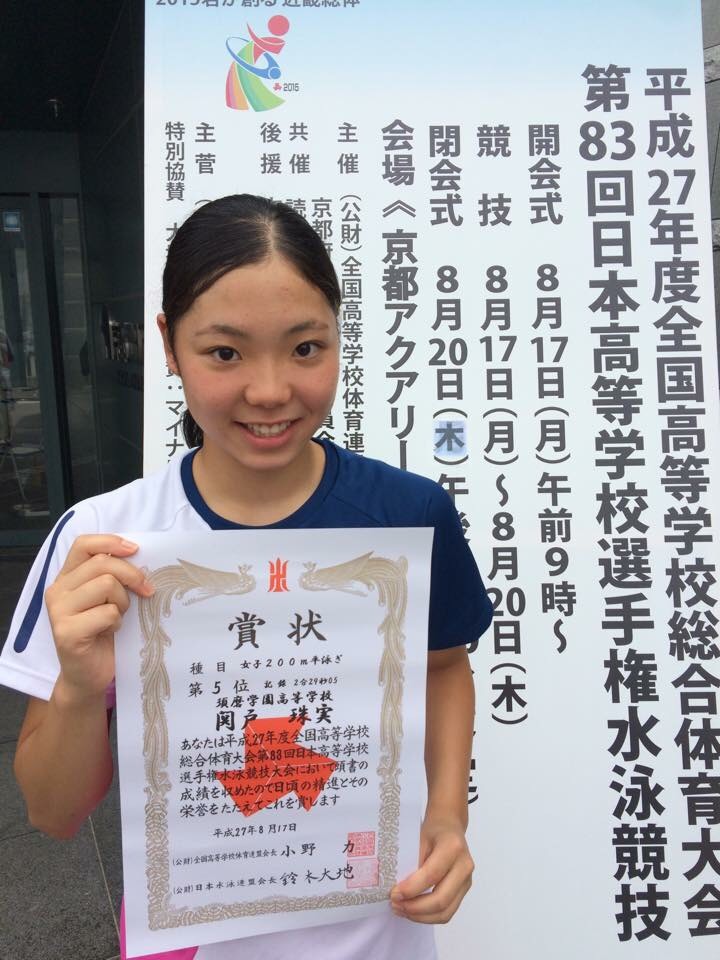 2015君が創る近畿総体
2015
平成27年度全国高等学校総合体育大会
第83回日本高等学校選手権水泳競技
開会式 8月17日(月)午前9時~
競技 8月17日(月)~8月20日(木)
閉会式 8月20日(木)午後
会場《京都アクアリー
主催 (公財)全国高等学校体育連
京都府
共催 読
後援
主菅
特別協賛 大
マイナ
賞状
種目 女子200m平泳ぎ
第5位 記録 2分29秒05
須磨学園高等学校
関戸 珠実
あなたは平成27年度全国高等学校
総合体育大会第83回日本高等学校
選手権水泳競技大会において頭書の
成績を収めたので日頃の精進とその
栄誉をたたえてこれを賞します
平成27年8月17日
(公財)全国高等学校体育連盟会長 小野 力
(公財)日本水泳連盟会長 鈴木大地